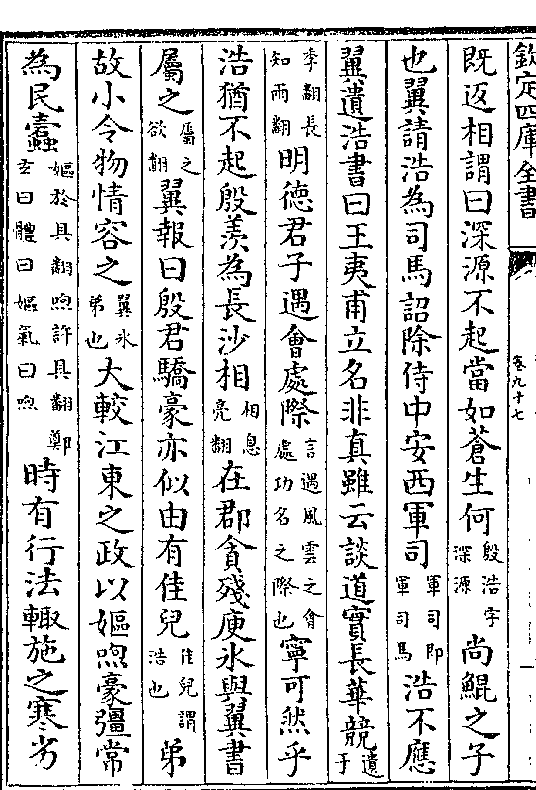 欽定四庫全書
卷九十七
既返相謂曰深源不起當如蒼生何殷浩字深源尚鯤之子
也翼請浩為司馬詔除侍中安西軍司軍司即軍司馬浩不應
翼遺浩書曰王夷甫立名非真雖云談道實長華競遺于
季翻長知兩翻明德君子遇會處際言遇風雲之會處功名之際也寧可然乎
浩猶不起殷羨為長沙相相息亮翻在郡貪殘庾氷與翼書
屬之屬之欲翻翼報曰殷君驕豪亦似由有佳兒佳兒謂浩也弟
故小令物情容之翼氷弟也大較江東之政以嫗喣豪彊常
為民蠹嫗於具翻喣許具翻鄭玄曰體曰嫗氣曰喣時有行法輙施之寒劣